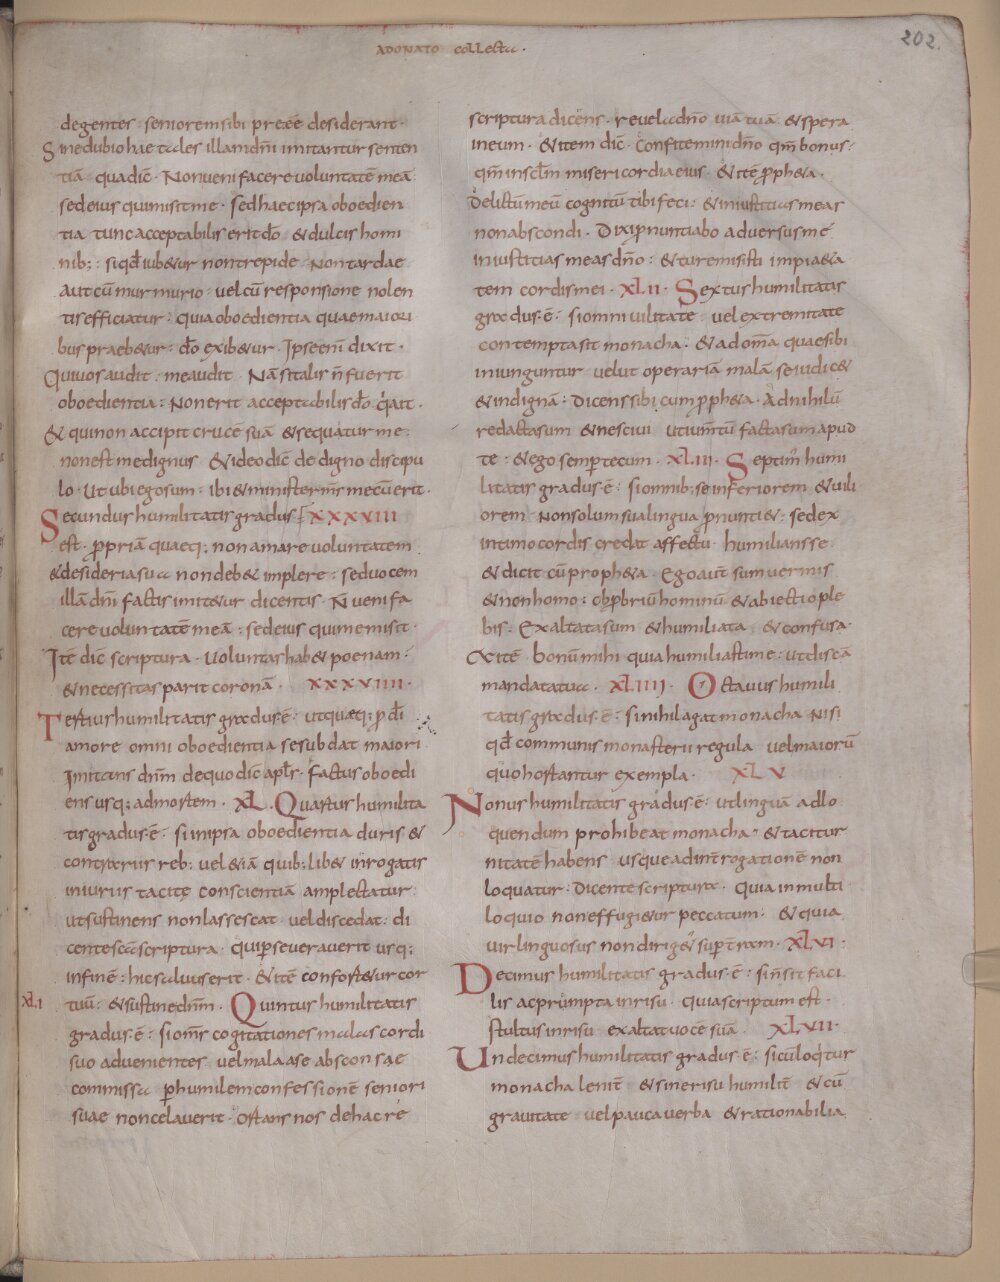 202.
ADONATO collecta.
degentes. seniorem sibi preēē desiderant.
Sine dubio hae tales illam dn̄i imitantur senten
tiā quadic̄. Non veni facere voluntatē meā
sed eius qui misit me. Sed haec ipsa oboedien
tia tunc acceptabilis erit d̄o & dulcis homi
nib;: si qđ iub&ur non trepide. Non tardae
aut cū murmurio vel cū responsione nolen
tis efficiatur: quia oboedientia quae maiori
bus praeb&ur: d̄o exib&ur. Ipse eni dixit.
Qui vos audit. me audit. Nā si talis n̄ fuerit
oboedientia: Non erit acceptabilis d̄o q ait.
& qui non accipit crucē suā & sequatur me.
non est me dignus & ideo dic̄ de digno discipu
lo. Ut ubi ego sum. ibi & minister m̄s mecū erit.
Secundus humilitatis gradus [XXXVIII
est. ꝓpriā quaeq; non amare voluntatem
& desideria sua non deb& implere: sed vocem
illā dn̄i factis imit&ur dicentis. N̄ veni fa
cere voluntatē meā: sed eius qui me misit.
Itē dic̄ scriptura. Voluntas hab& poenam:
& necessitas parit coronā. XXXVIIII.
Tertius humilitatis gradus .ē. ut quaeq; p d̄i
amore omni oboedientia se subdat maiori
Imitans dn̄m de quo dic̄ apl̄s. factus oboedi
ens usq; ad mortem. XL. Quartus humilita
tis gradus .ē. si in ipsa oboedientia duris &
contrariis reb; vel &iā quib;lib& inrogatis
iniuriis tacite conscientiā amplectatur
ut sustinens non lassescat vel discedat: di
centescā scriptura. qui pseveraverit usq;
in finē: hic salvus erit. & itē confort&ur cor
XLI tuū: & sustine dn̄m. Quintus humilitatis
gradus .ē: si om̄s cogitationes malas cordi
suo advenientes vel mala a se absconsae
commissa p humilem confessionē seniori
suae non celaverit. ortans nos de hac re
scriptura dicens. revela dn̄o viā tuā & spera
in eum. & item dic̄. Confitemini dn̄o qm̄ bonus:
qm̄ in scl̄m misericordia eius. & itē ꝓph&a.
Delictū meū cognitū tibi feci: & iniustitias meas
non abscondi. Dixi ꝓnuntiabo adversus me
iniustitias meas dn̄o: & tu remisisti impia&a
tem cordis mei. XLII. Sextus humilitatis
gradus .ē: si omni vilitate vel extremitate
contempta sit monacha: & ad om̄a quae sibi
iniunguntur velut operariā malā se iudic&
& indignā: Dicens sibi cum ꝓph&a. Ad nihilū
redacta sum & nescivi ut iumtū facta sum apud
te: & ego semp tecum. XLIII. Septim̄ humi
litatis gradus .ē: si omnib; se inferiorem & vili
orem non solum sua lingua ꝓnunti&: sed ex
intimo cordis credat affectu. humilians se
& dicit cū proph&a. Ego aut̄ sum vermis
& non homo: obꝓbriū hominū & abiectio ple
bis. Exaltata sum & humiliata & confusa.
& itē. bonū mihi quia humiliasti me: ut discā
mandata tua. XLIIII. Octavus humili
tatis gradus .ē: si nihil agat monacha nisi
qđ communis monasterii regula vel maiorū
quohortantur exempla. XLV
Nonus humilitatis gradus .ē: ut linguā ad lo
quendum prohibeat monacha & tacitur
nitatē habens usque ad int̄rogationē non
loquatur: Dicente scriptura. Quia in multi
loquio non effugi&ur peccatum: & quia
vir linguosus non dirig&ur sup t̄ram. XLVI.
Decimus humilitatis gradus .ē: si n̄ sit faci
lis ac prompta in risu. quia scriptum est.
stultus in risu exaltat vocē suā. XLVII.
Undecimus humilitatis gradus .ē: si cū loqtur
monacha lenit̄ & sine risu humilit̄ & cū
gravitate vel pauca verba & rationabilia